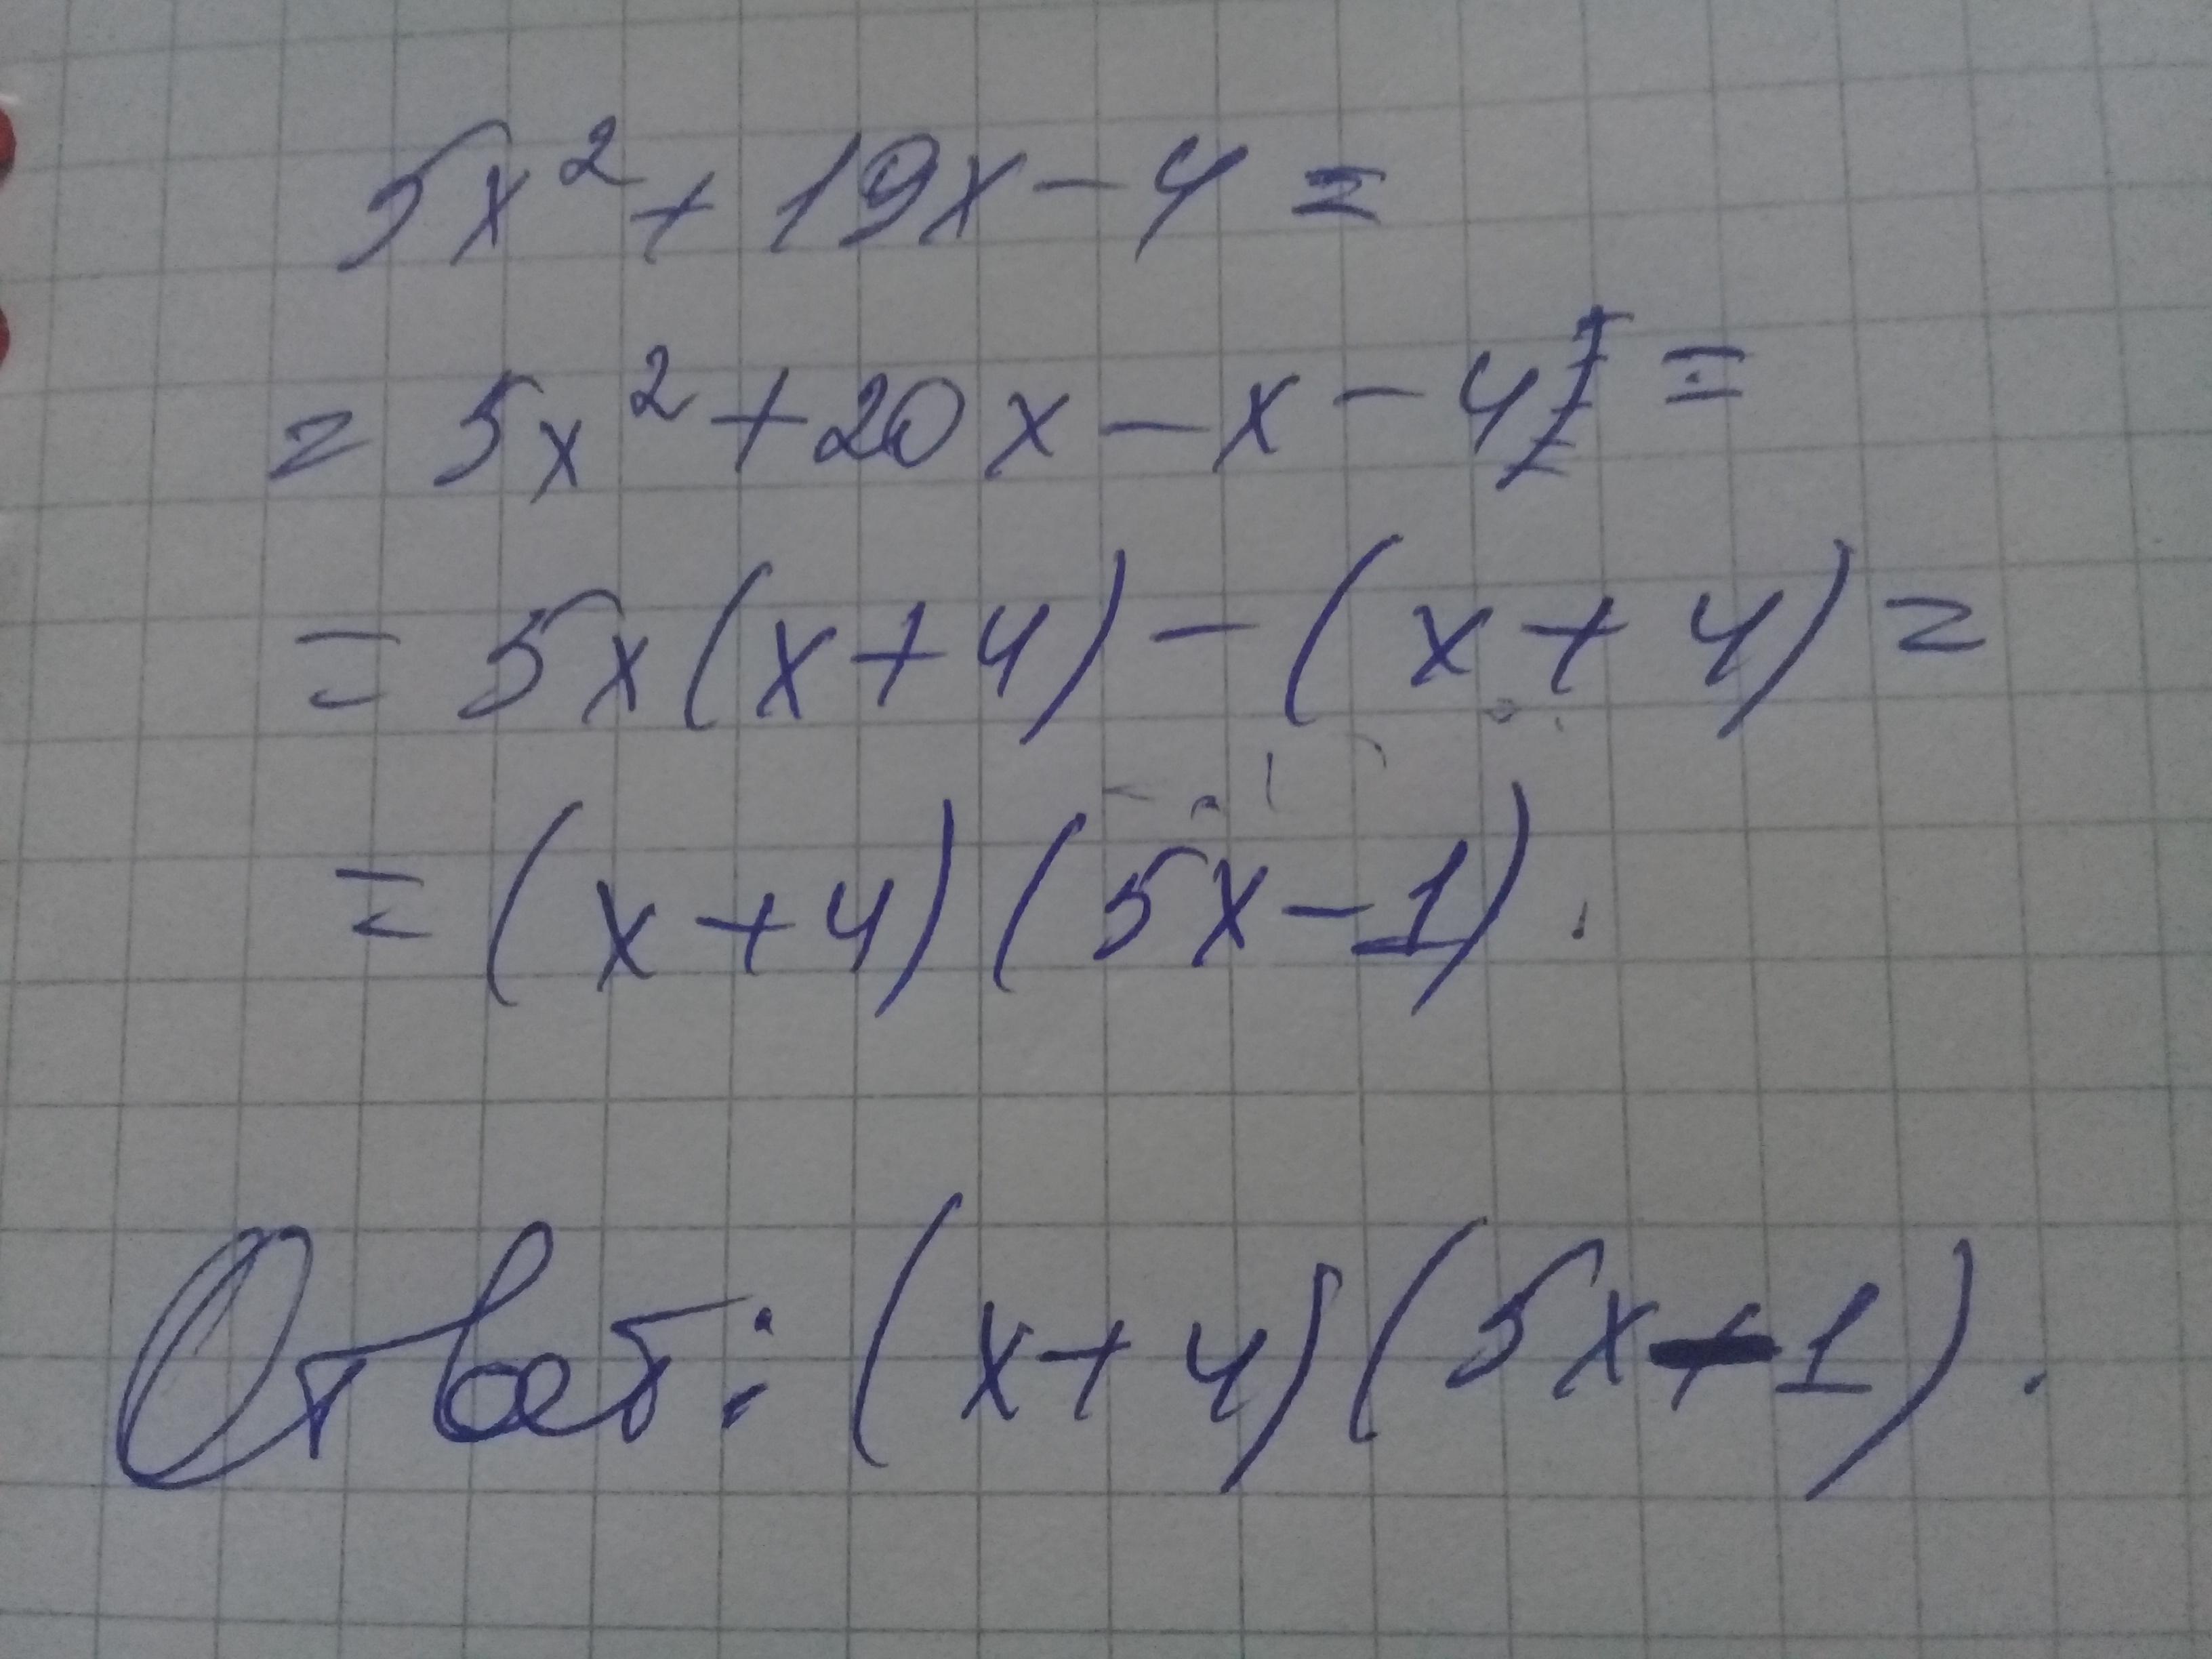 5x² + 19x - 4 =
= 5x² + 20x - x - 4 =
= 5x(x+4) - (x+4) =
= (x+4)(5x-1).
Ответ: (x+4)(5x-1).